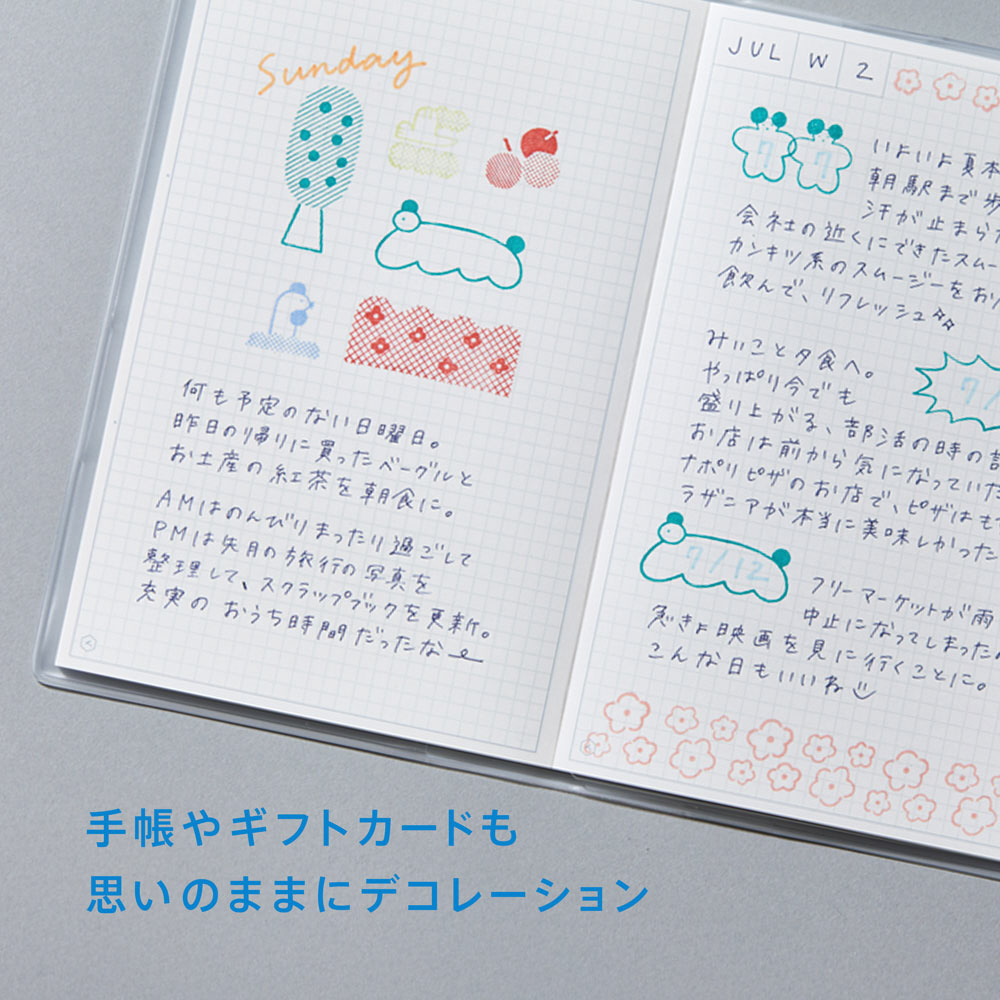 Sunday
何も予定のない日曜日。
昨日の帰りに買ったベーグルと
お土産の紅茶を朝食に。
AMはのんびりまったり過ごして
PMは先月の旅行の写真を
整理して、スクラップブックを更新。
充実の おうち時間だったな
JUL W 2
7 7
いよいよ夏本
朝駅まで歩
汗が止まらな
会社の近くにできたスムー
カンキツ系のスムージーをお
飲んで、リフレッシュ
みいこと夕食へ。
やっぱり今でも
盛り上がる、部活の時の話
7/
お店は前から気になっていた
ナポリピザのお店で、ピザはも
ラザニアが本当に美味しかった
7/12
フリーマーケットが雨
中止になってしまった
急きょ映画を見に行くことに。
こんな日もいいね
手帳やギフトカードも
思いのままにデコレーション